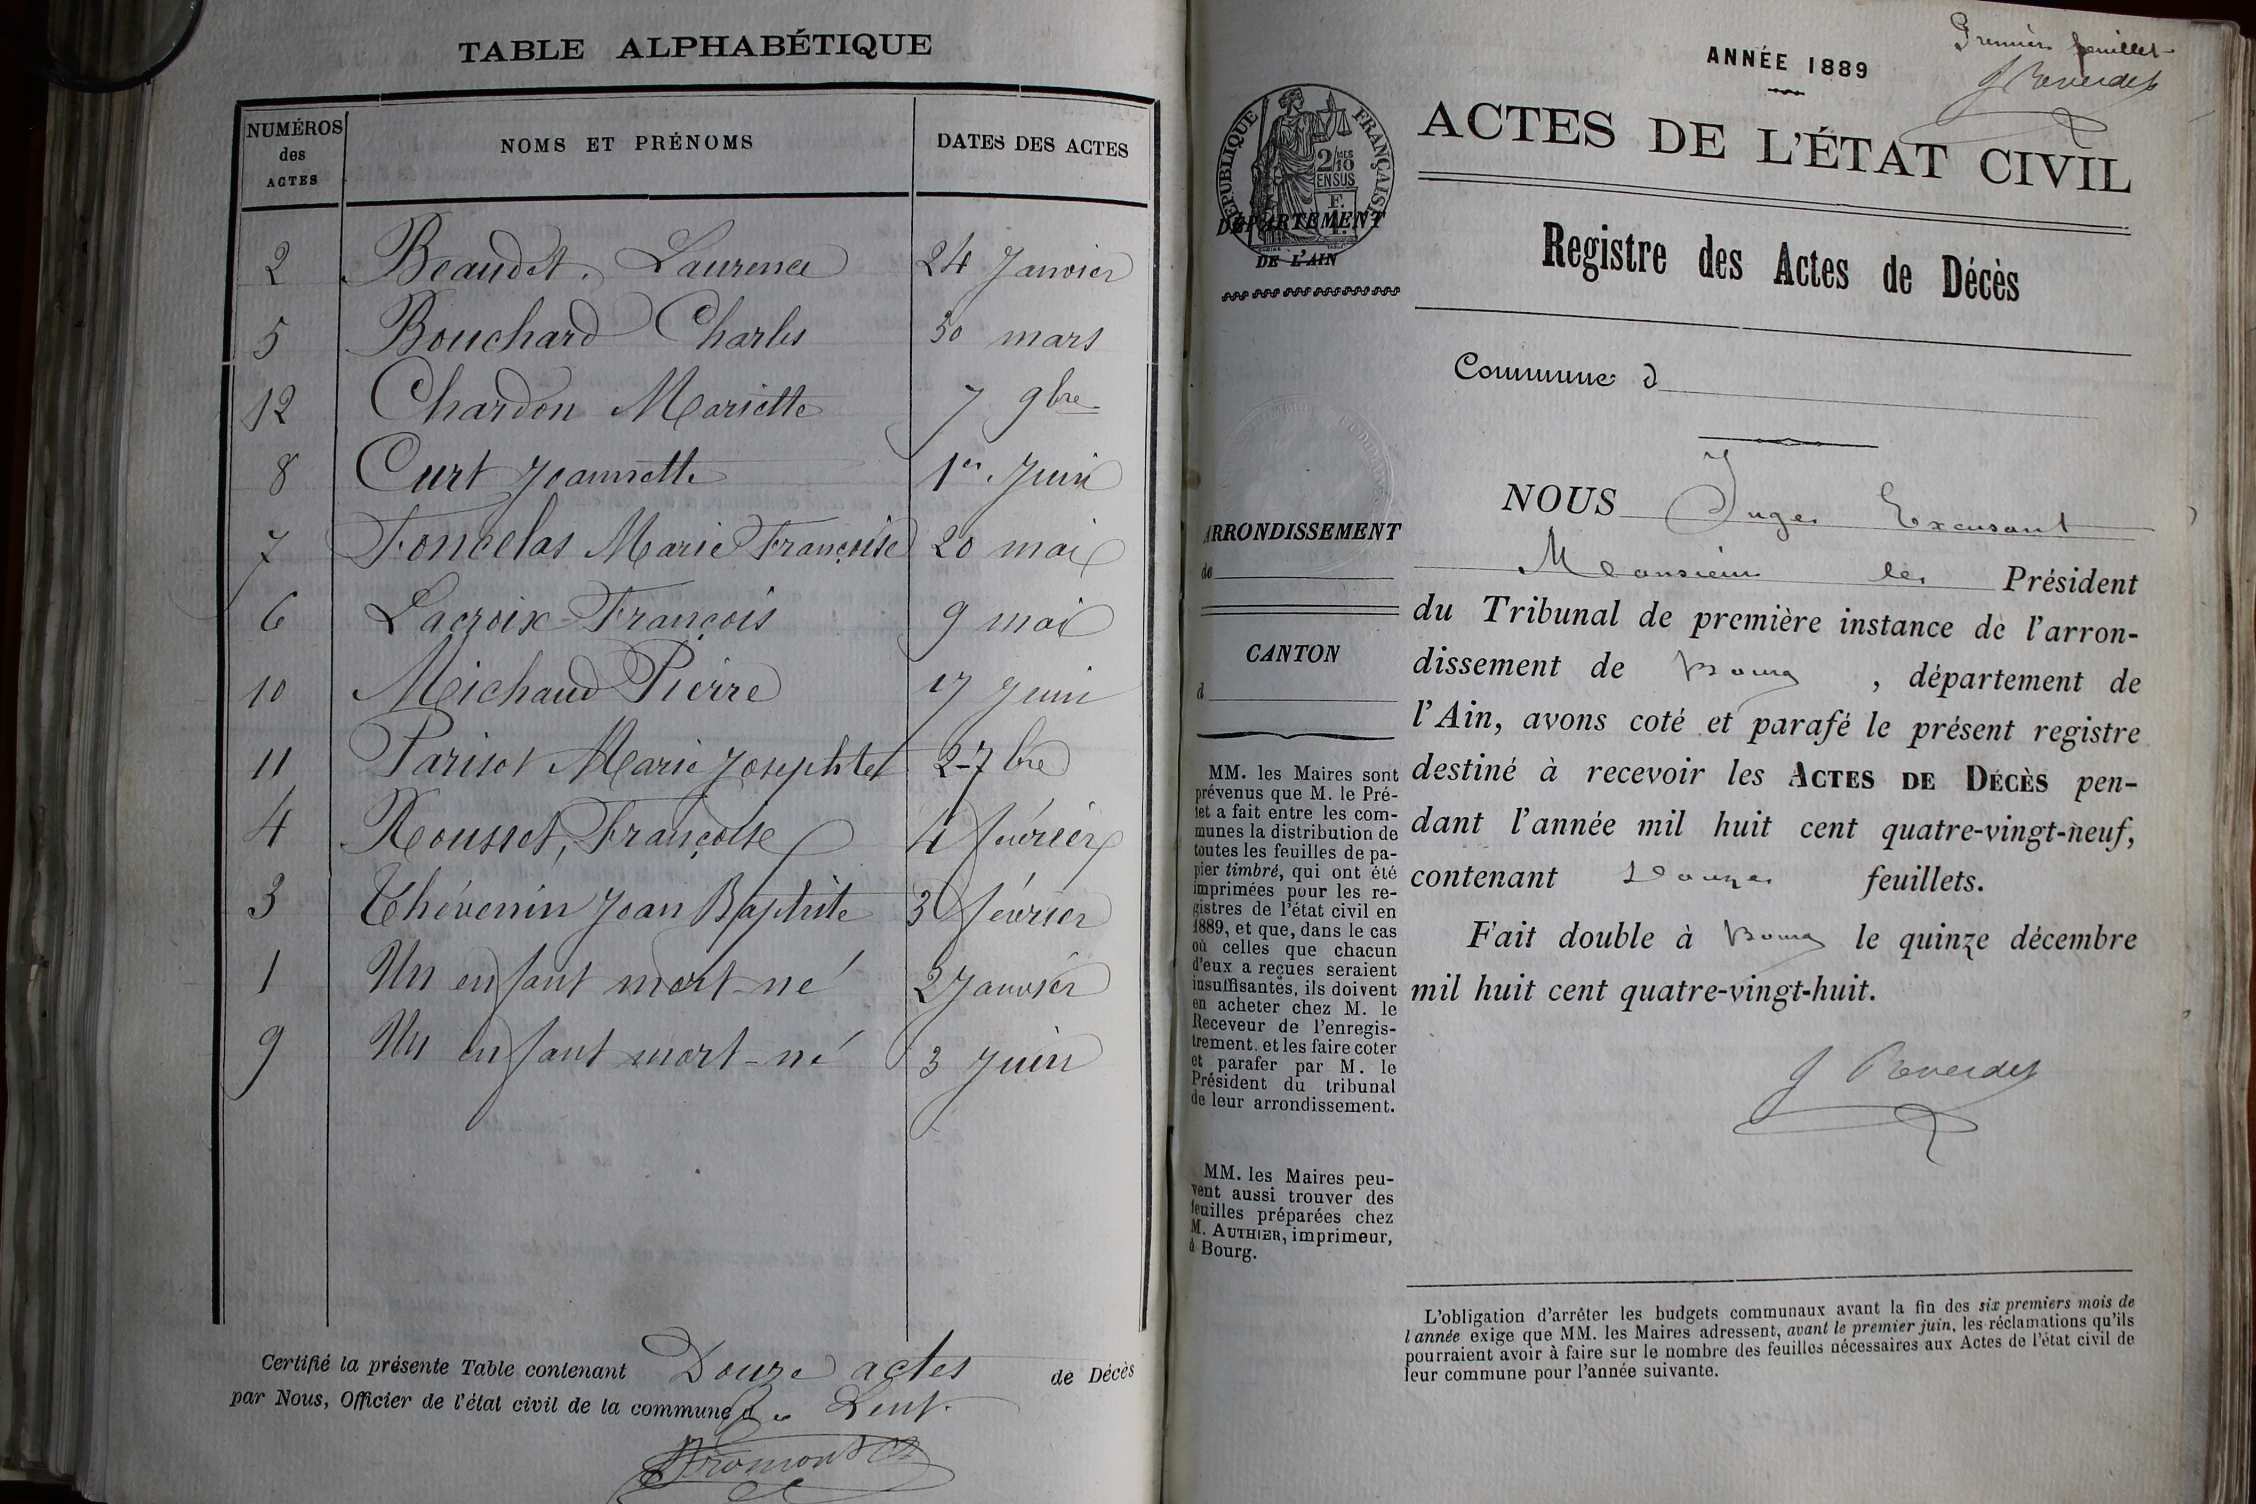 TABLE ALPHABÉTIQUE
NUMÉROS des ACTES NOMS ET PRÉNOMS DATES DES ACTES
2 Beaudet, Laurence 24 Janvier
5 Bouchard Charles 30 mars
12 Chardon Mariette 7 9bre
8 Curt Jeannette 1er Juin
7 Foncelas Marie Françoise 20 mai
6 Lacroix François 9 mai
10 Michaud Pierre 17 Juin
11 Parisot Marie Josephte 2 7bre
4 Rousset, Françoise 4 février
3 Thévenin Jean Baptiste 3 février
1 Un enfant mort-né 2 Janvier
9 Un enfant mort-né 3 Juin
Certifié la présente Table contenant Douze actes de Décès
par Nous, Officier de l'état civil de la commune de Lent.
Premier feuillet
J Reverdy
ANNÉE 1889
ACTES DE L'ÉTAT CIVIL
RÉPUBLIQUE FRANÇAISE
2/10 EN SUS
DÉPARTEMENT
DE L'AIN
Registre des Actes de Décès
Commune d
NOUS Juge Excusant
Monsieur le Président
du Tribunal de première instance de l'arron-
dissement de Bourg, département de
l'Ain, avons coté et parafé le présent registre
destiné à recevoir les ACTES DE DÉCÈS pen-
dant l'année mil huit cent quatre-vingt-neuf,
contenant Douze feuillets.
Fait double à Bourg le quinze décembre
mil huit cent quatre-vingt-huit.
J Reverdy
ARRONDISSEMENT
de
CANTON
d
MM. les Maires sont
prévenus que M. le Pré-
fet a fait entre les com-
munes la distribution de
toutes les feuilles de pa-
pier timbré, qui ont été
imprimées pour les re-
gistres de l'état civil en
1889, et que, dans le cas
où celles que chacun
d'eux a reçues seraient
insuffisantes, ils doivent
en acheter chez M. le
Receveur de l'enregis-
trement, et les faire coter
et parafer par M. le
Président du tribunal
de leur arrondissement.
MM. les Maires peu-
vent aussi trouver des
feuilles préparées chez
M. AUTHIER, imprimeur,
à Bourg.
L'obligation d'arrêter les budgets communaux avant la fin des six premiers mois de
l'année exige que MM. les Maires adressent, avant le premier juin, les réclamations qu'ils
pourraient avoir à faire sur le nombre des feuilles nécessaires aux Actes de l'état civil de
leur commune pour l'année suivante.